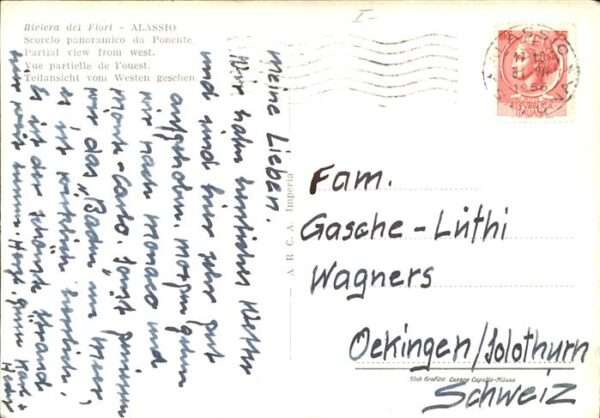 Riviera dei Fiori - ALASSIO
Scorcio panoramico da Ponente
Partial view from west.
Vue partielle de l'ouest.
Teilansicht vom Westen gesehen
I-
ALASSIO
Meine Lieben.
Wir haben herrliches Wetter
und sind hier sehr gut
aufgehoben. Morgen gehen
wir nach Monaco und
Monte-Carlo. Sonst geniessen
wir das "Baden im Meer,
es ist wirklich herrlich.
Es ist der schönste Strand
Herzl. Grüsse
A R C A Imperia
Fam.
Gasche-Lüthi
Wagners
Oekingen/Solothurn
Schweiz
Stab Grafico Cesare Capello-Milano